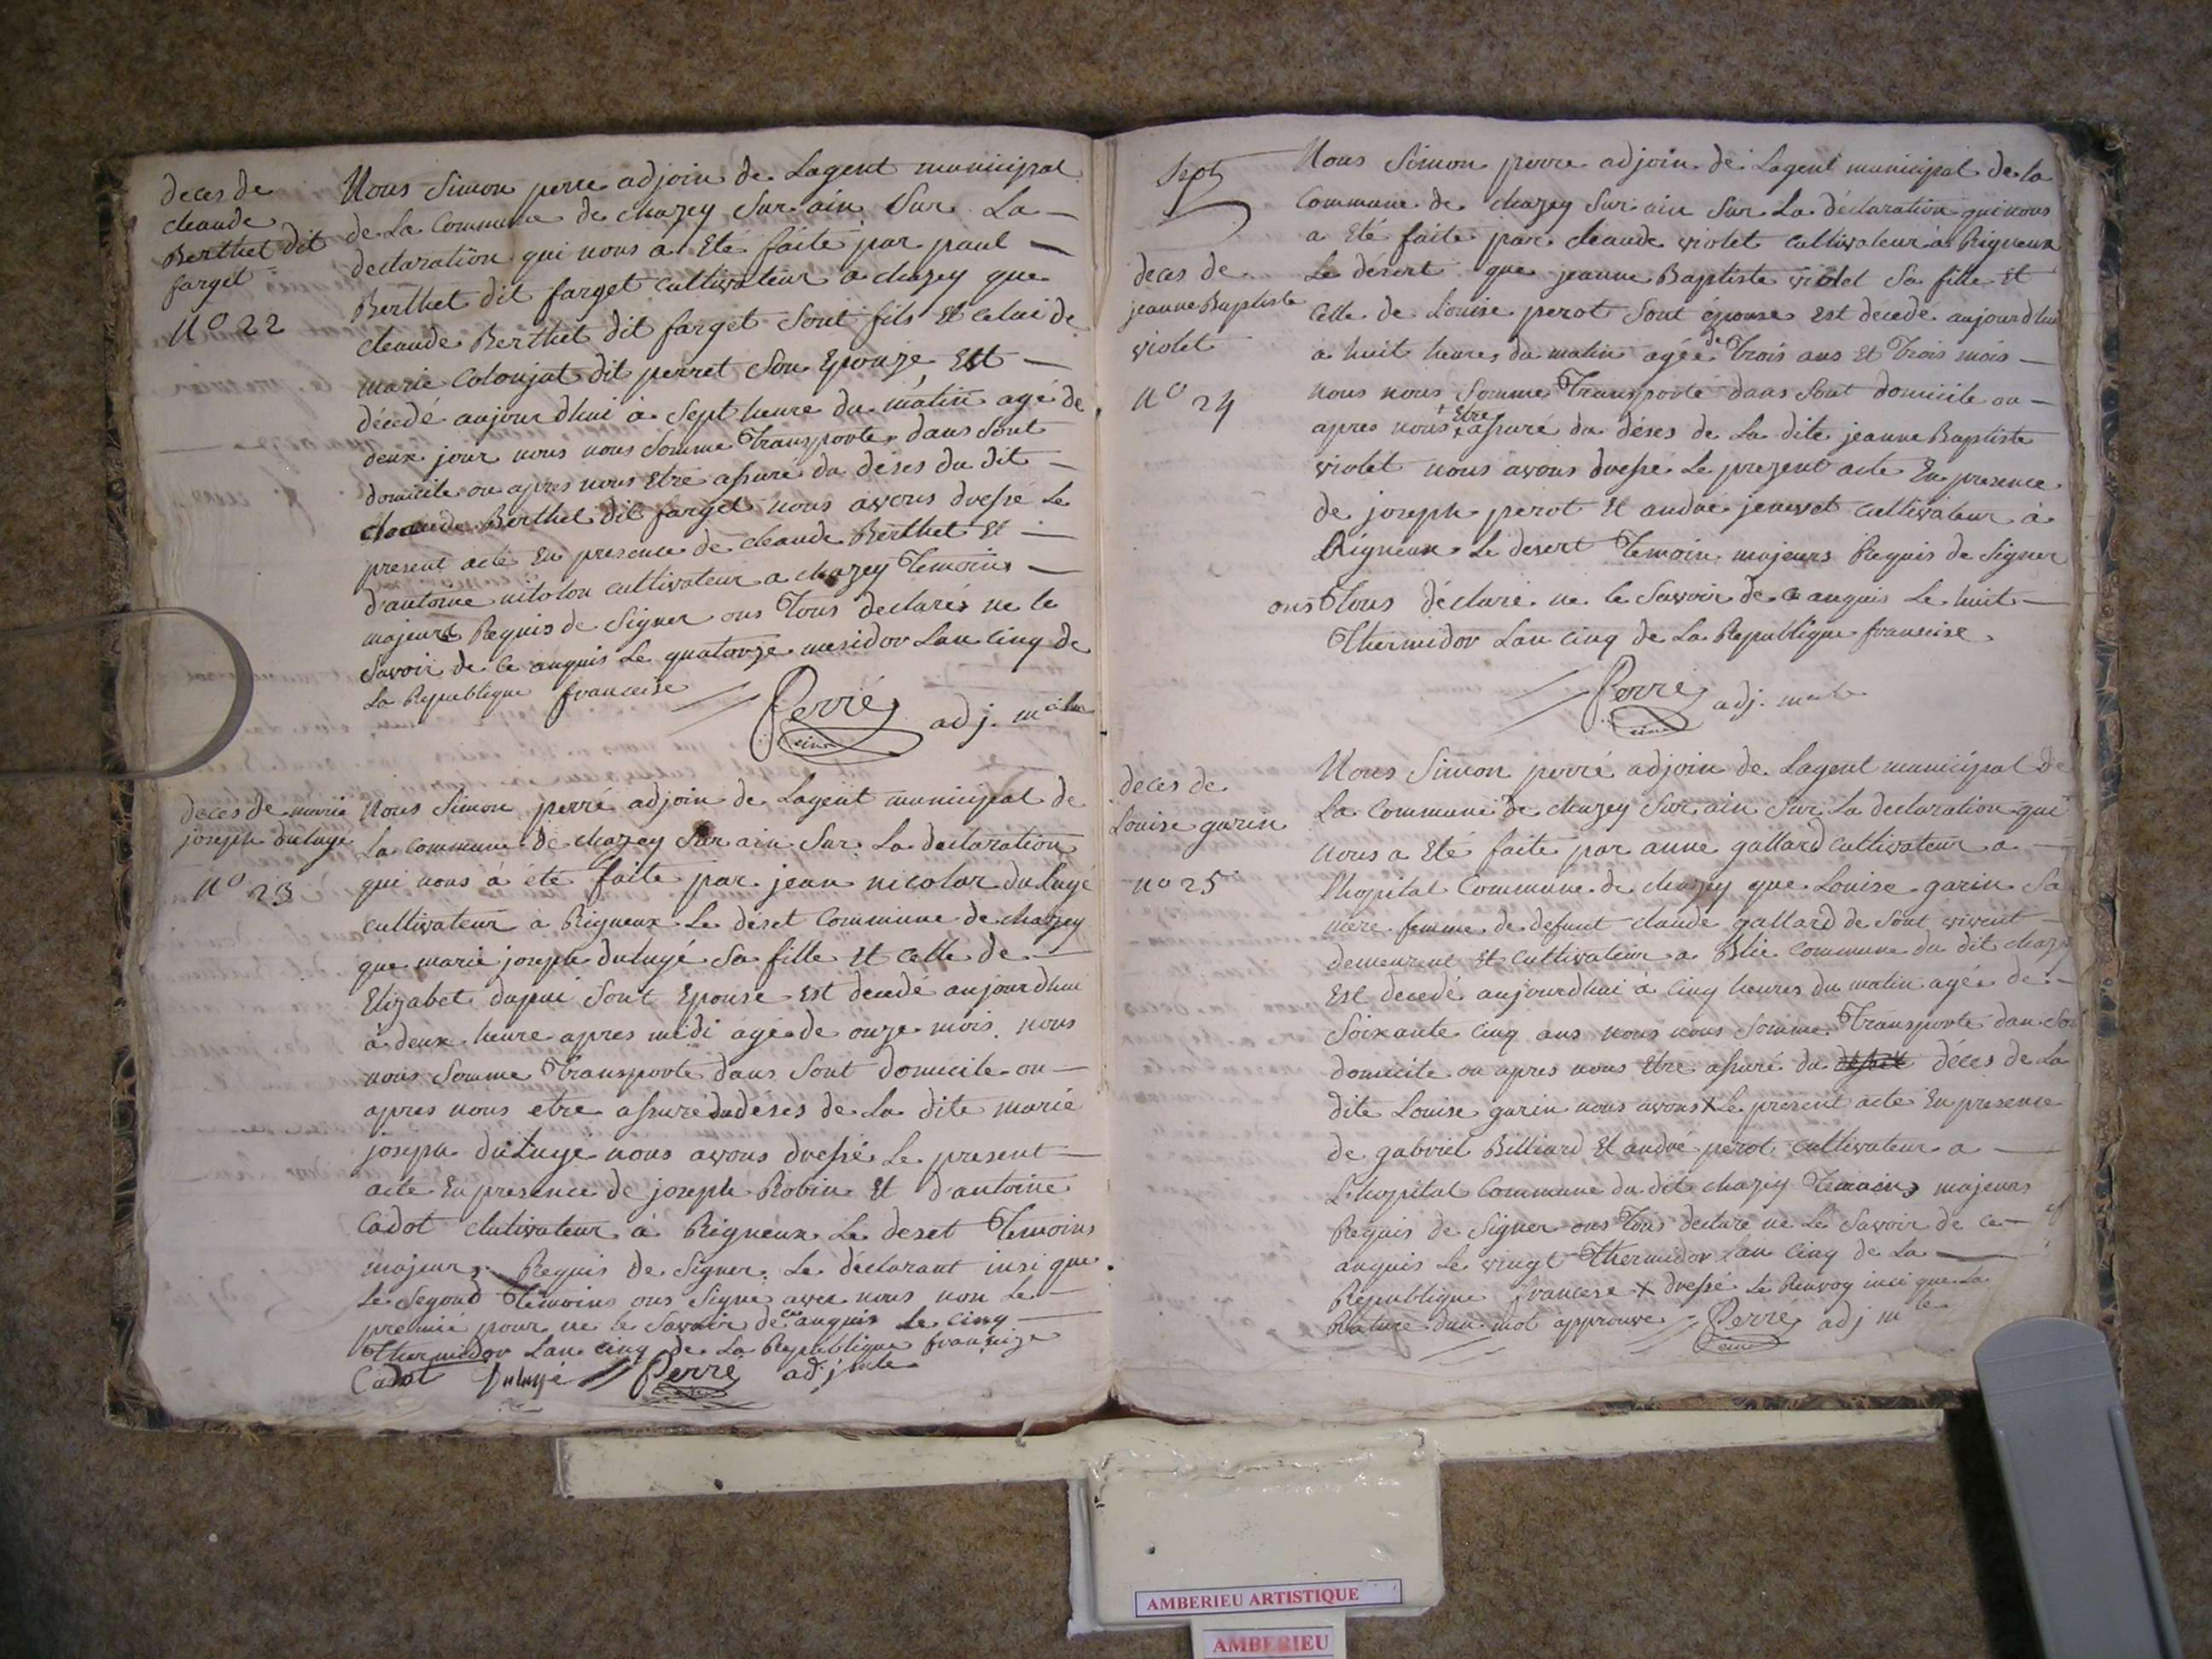 deces de
claude
Berthet dit
farget
N° 22
Nous Simon perré adjoin de Lagent municipal
de La Commune de chazey Sur ain Sur La
declaration qui nous a Eté faite par paul
Berthet dit farget cultivateur a chazey que
claude Berthet dit farget Sont fils Et celui de
marie Colonjat dit perret Son Epouze Est
décédé aujourdhui à Sept heure du matin agé de
deux jour nous nous Somme Transporte dans Sont
domicile ou apres nous Etre assuré du déses du dit
claude Berthet dit farget nous avons dressé Le
present acte En presence de claude Berthet Et
d'antoine cultivateur a chazey Temoins
majeurs Requis de Signer ons Tous declarés ne le
Savoir de ce anquis Le quatorze mesidor Lan Cinq de
La Republique francaise
Perré adj. m
deces de marie
joseph duluye
N° 23
Nous Simon perré adjoin de Lagent municipal de
La commune de chazey Sur ain Sur La declaration
qui nous à été faite par jean nicolas duluyé
cultivateur a Rigneux Le déset Commune de chazey
que marie joseph duluyé Sa fille Et celle de
Elizabet dupui Sont Epouse Est decedé aujourdhui
à deux heure apres midi agé de onze mois. nous
nous Somme Transporte dans Sont domicile ou
apres nous etre assuré du déses de La dite marie
joseph duluye nous avons dressé Le present
acte En presence de joseph Robin Et d'antoine
Cadot clutivateur à Rigneux Le deset Temoins
majeurs Requis de Signer Le déclarant insi que
Le Segond Témoins ons Signe avec nous non Le
premie pour ne le Savoir de ce anquis Le Cinq
Thermidor Lan cinq de La Republique françaize
Cadot Duluyé Perré adj mle
Sept
deces de
jeanne Baptiste
violet
N° 24
Nous Simon perre adjoin de Lagent municipal de la
Commune de chazey Sur ain Sur La déclaration qui nous
a Eté faite par claude violet cultivateur à Rigneux
Le désert que jeanne Baptiste violet Sa fille Et
Celle de Louise perot Sont épouse est decedé aujourdhui
a huit heures du matin agée de Trois ans Et Trois mois
nous nous Somme Transporté dans Sont domicile ou
apres nous Etre assuré du déses de La dite jeanne Baptiste
violet nous avons dressé Le prezent acte En presence
de joseph perot Et andré jenevet cultivateur à
Rigneux Le desert Temoin majeurs Requis de Signer
ons Tous déclaré ne le Savoir de ce anquis Le huit
Thermidor Lan Cinq de La Republique francaise
Perré adj. mle
deces de
Louise garin
no 25
Nous Simon perré adjoin de Lagent municipal de
La Commune de chazey Sur ain Sur La declaration qui
nous a Eté faite par anne gallard cultivateur a
Lhopital Commune de chazey que Louise garin Sa
mere femme de defunt claude gallard de Sont vivent
demeurent Et cultivateur a Blie Commune du dit chazey
Est decedé aujourdhui à Cinq heures du matin agée de
Soixante cinq ans nous nous Somme Transporte dan Son
domicile ou apres nous Etre assuré du déces de La
dite Louise garin nous avons X Le present acte En presence
de gabriel Billiard Et andré perot cultivateur a
Lhopital Commune du dit chazey Temoins majeurs
Requis de Signer ons Tous declare ne Le Savoir de ce
anquis Le vingt Thermidor Lan Cinq de La
Republique francese X dressé Le Renvoy insi que La
Rature dun mot approuve Perré adj mle
AMBERIEU ARTISTIQUE
AMBERIEU